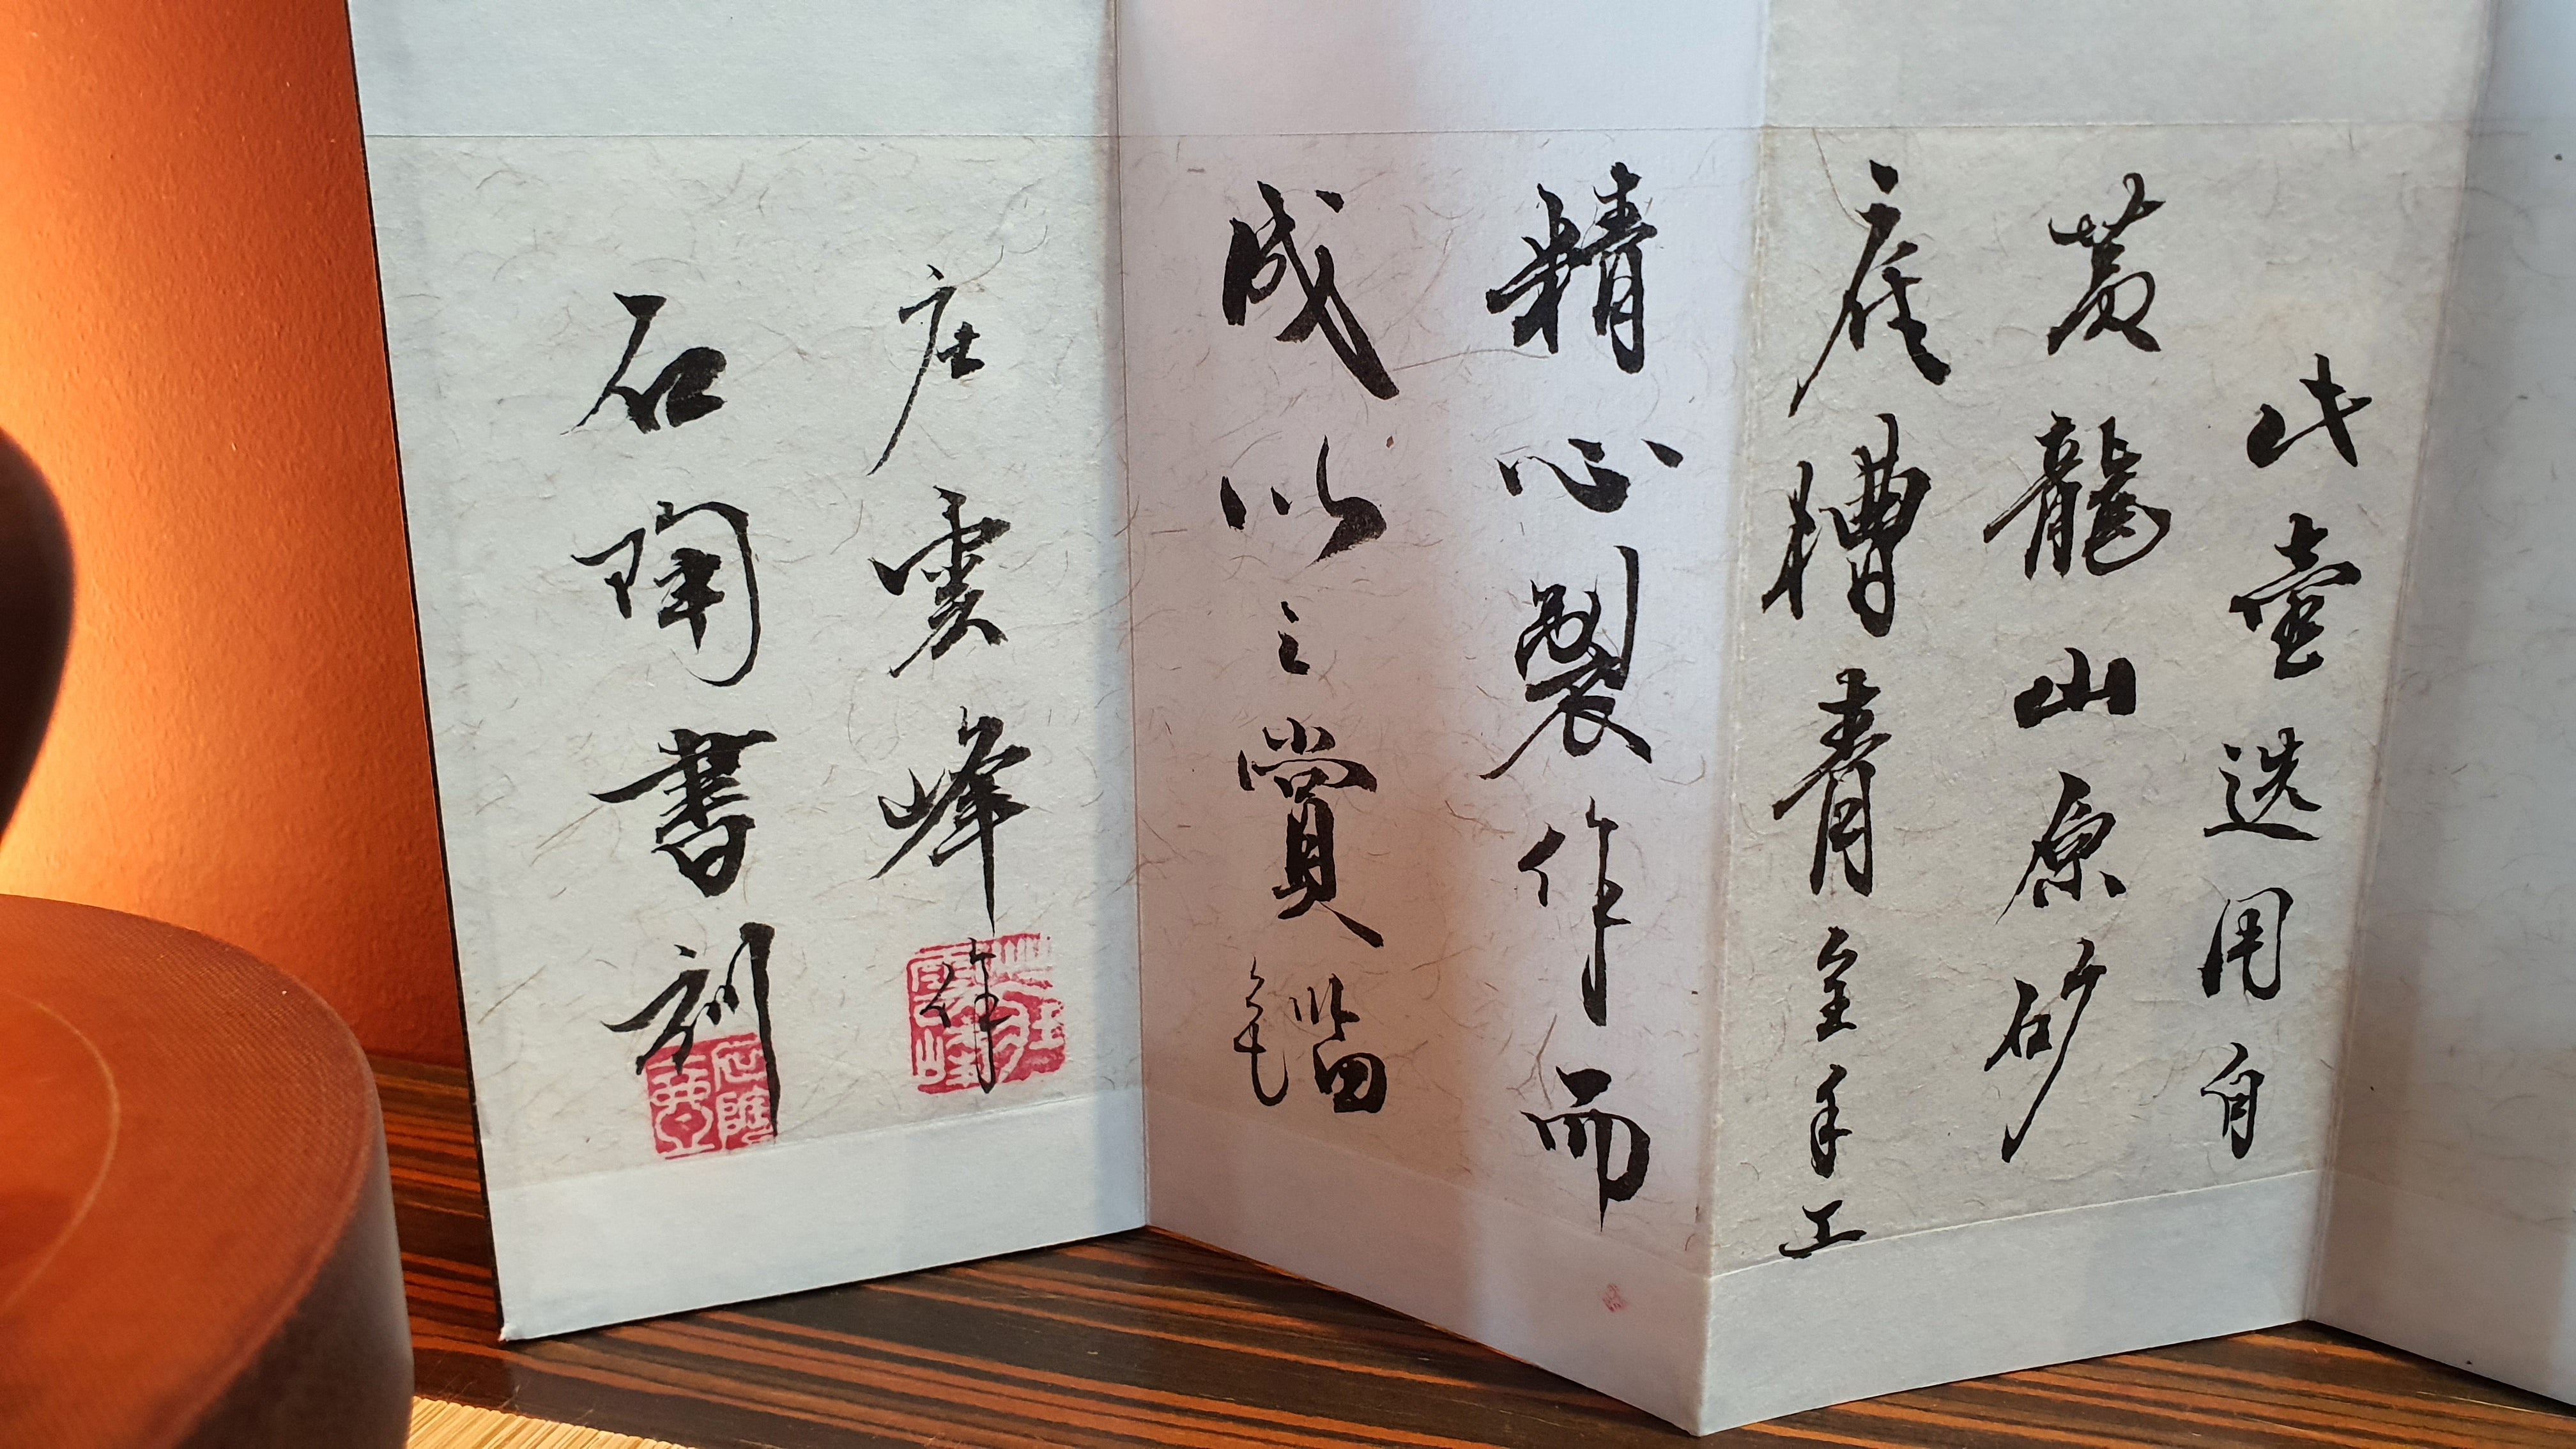 此壺选用自
黄龍山原砂
底槽青全手工
精心製作而
成以之賞鑑
庄雲峰作
石陶書刻